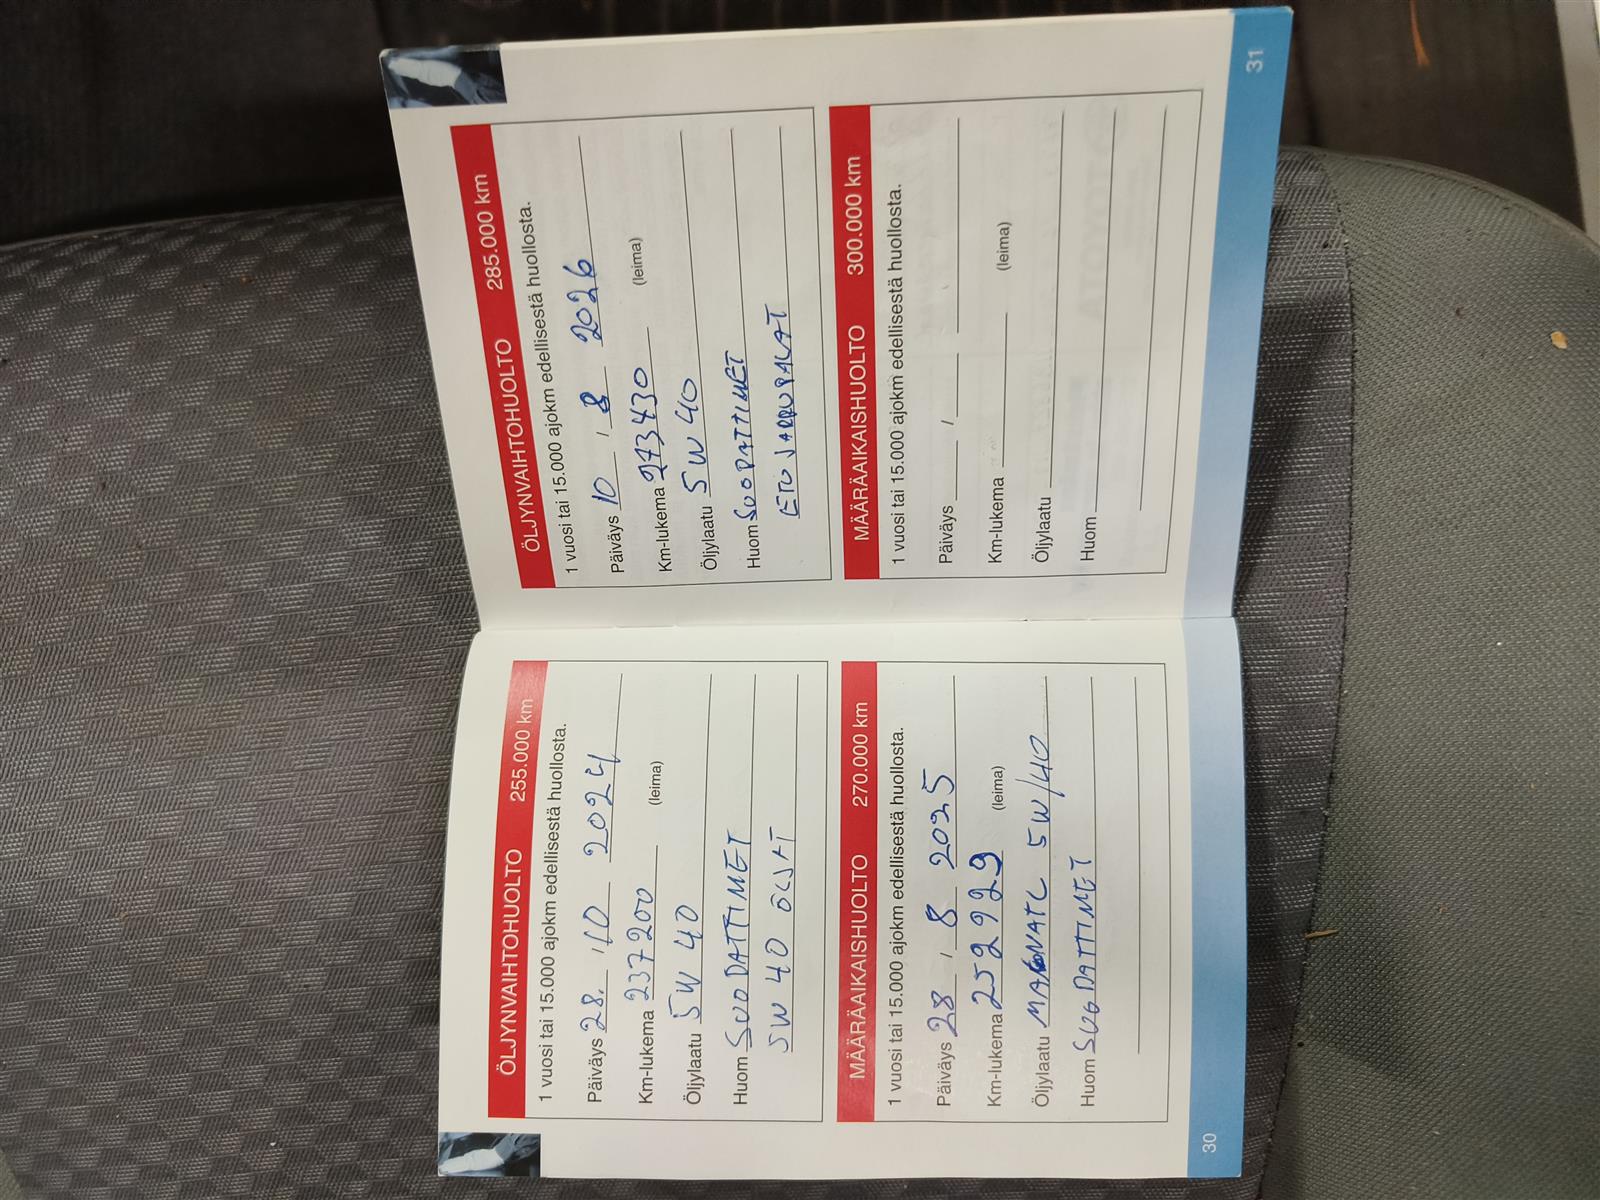 ÖLJYNVAIHTOHUOLTO 255.000 km
1 vuosi tai 15.000 ajokm edellisestä huollosta.
Päiväys 28. 10 2024
Km-lukema 237200 (leima)
Öljylaatu 5W 40
Huom SUODATTIMET
5W 40 ÖLJAT
MÄÄRÄAIKAISHUOLTO 270.000 km
1 vuosi tai 15.000 ajokm edellisestä huollosta.
Päiväys 28 / 8 2025
Km-lukema 252929 (leima)
Öljylaatu MAGNATC 5W/40
Huom SUODATTIMET
30
ÖLJYNVAIHTOHUOLTO 285.000 km
1 vuosi tai 15.000 ajokm edellisestä huollosta.
Päiväys 10 / 8 2026
Km-lukema 273430 (leima)
Öljylaatu 5W 40
Huom SUODATTIMET
ETUJARRUPALAT
MÄÄRÄAIKAISHUOLTO 300.000 km
1 vuosi tai 15.000 ajokm edellisestä huollosta.
Päiväys /
Km-lukema (leima)
Öljylaatu
Huom
31